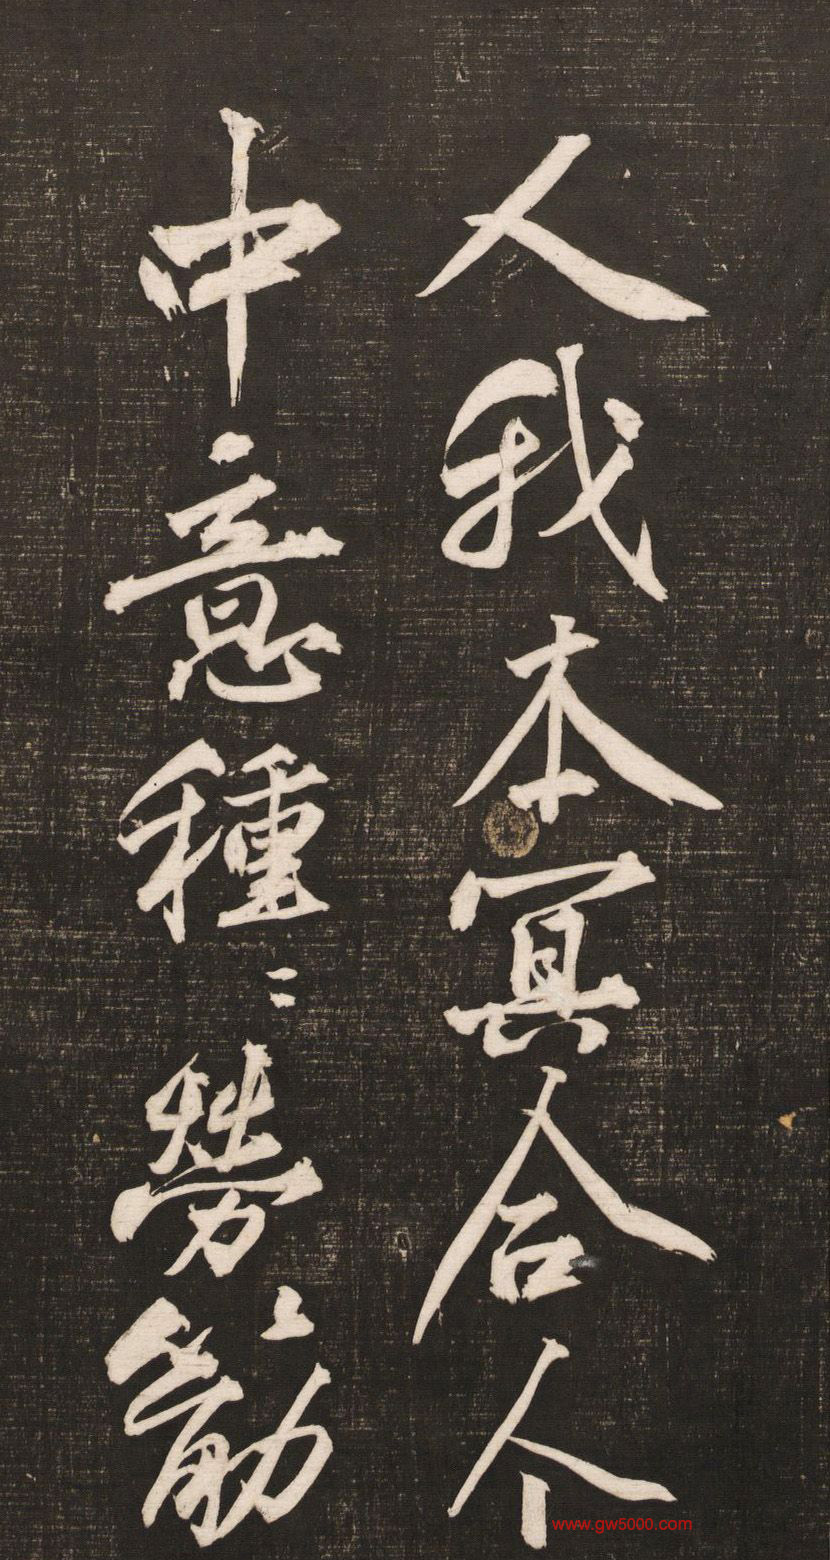 人我本冥合个
中意種〻勞筋
www.gw5000.com